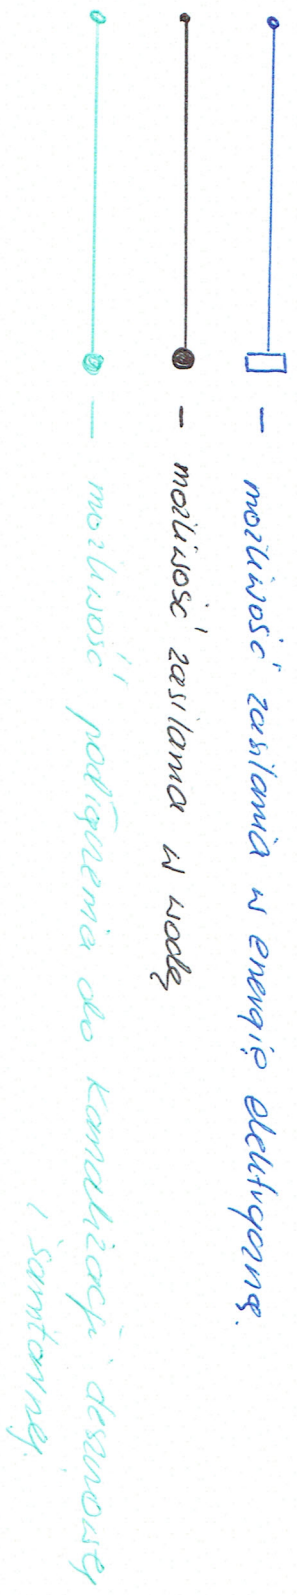 — możliwość zasilania w energię elektryczną.
— możliwość zasilania w wodę
— możliwość podłączenia do kanalizacji deszczowej
i sanitarnej.